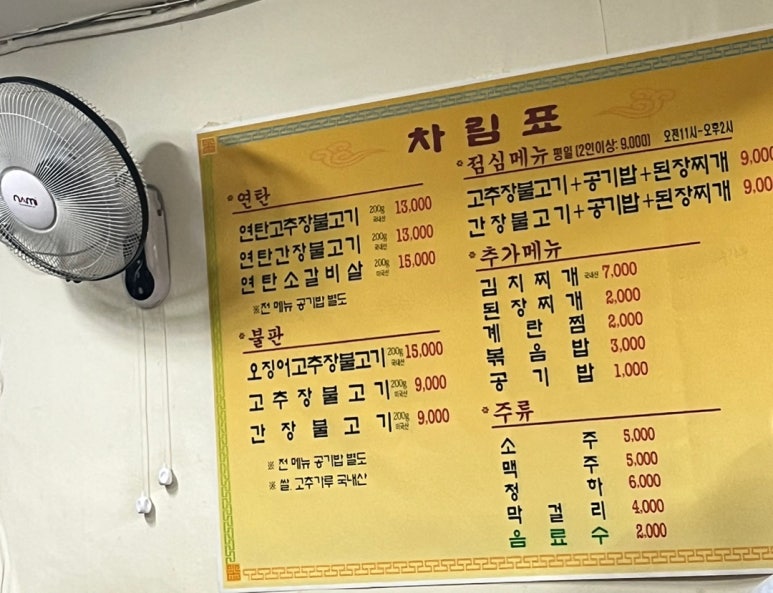 NAMI
차림표
연탄
연탄고추장불고기 200g 국내산 13,000
연탄간장불고기 200g 국내산 13,000
연탄소갈비살 200g 미국산 15,000
※전 메뉴 공기밥 별도
불판
오징어고추장불고기 200g 국내산 15,000
고추장불고기 200g 미국산 9,000
간장불고기 200g 미국산 9,000
※ 전 메뉴 공기밥 별도
※ 쌀, 고추가루 국내산
점심메뉴 평일 (2인이상: 9,000) 오전11시~오후2시
고추장불고기+공기밥+된장찌개 9,000
간장불고기+공기밥+된장찌개 9,00
추가메뉴
김치찌개 국내산 7,000
된장찌개 2,000
계란찜 2,000
볶음밥 3,000
공기밥 1,000
주류
소주 5,000
맥주 5,000
청하 6,000
막걸리 4,000
음료수 2,000